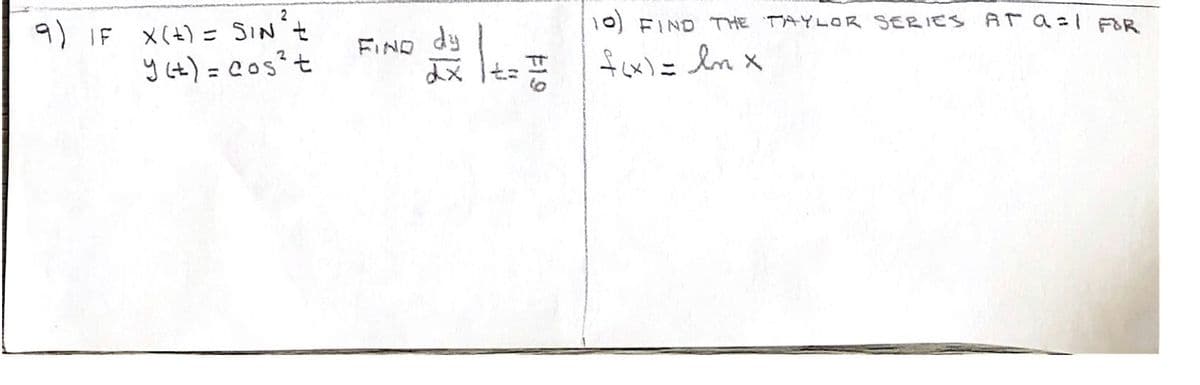 9) IF x(t) = SIN²t
y(t) = cos²t
FIND dy/dx | t= π/6
10) FIND THE TAYLOR SERIES AT a=1 FOR
f(x) = ln x